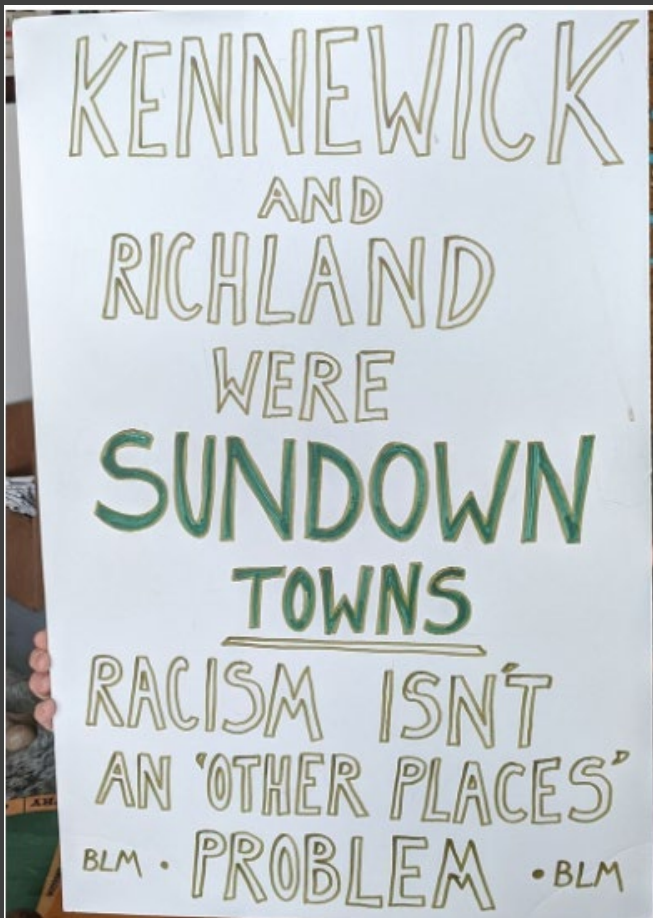 KENNEWICK
AND
RICHLAND
WERE
SUNDOWN
TOWNS
RACISM ISN'T
AN 'OTHER PLACES'
PROBLEM
BLM • • BLM